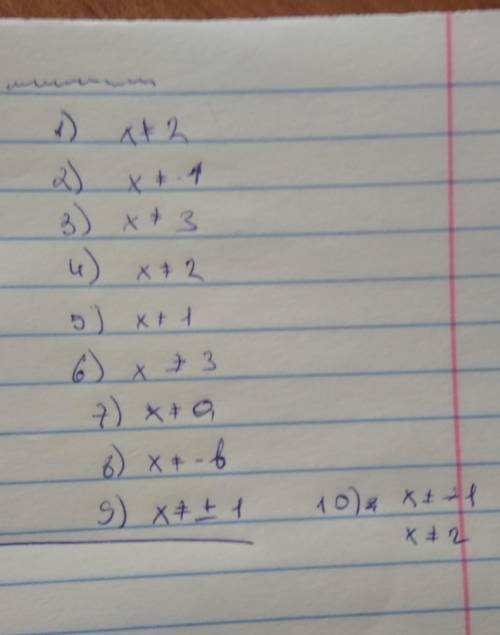 1) x ≠ 2
2) x ≠ -1
3) x ≠ 3
4) x ≠ 2
5) x ≠ 1
6) x ≠ 3
7) x ≠ 0
8) x ≠ -b
9) x ≠ ± 1
10) x ≠ -1
x ≠ 2